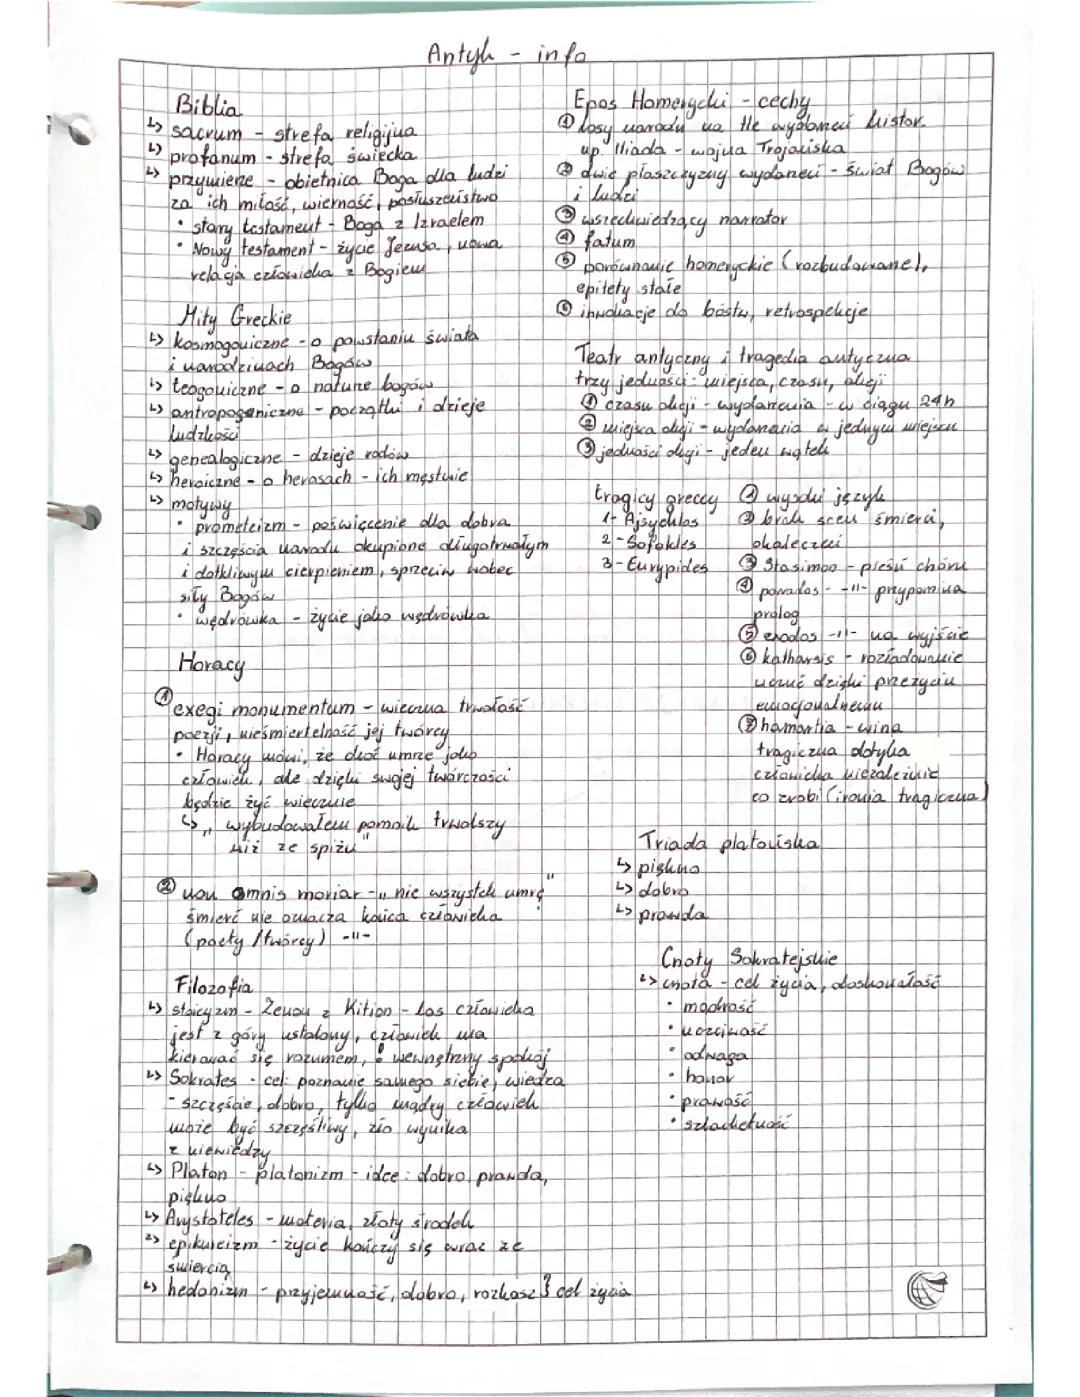 Antyk - info
Biblia
↳ sacrum - strefa religijna
↳ profanum - strefa świecka
↳ przymierze - obietnica Boga dla ludzi
za ich miłość, wierność, posłuszeństwo
• stary testament - Boga z Izraelem
• Nowy testament - życie Jezusa, nowa
relacja człowieka z Bogiem
Mity Greckie
↳ kosmogoniczne - o powstaniu świata
i narodzinach Bogów
↳ teogoniczne - o naturze bogów
↳ antropogeniczne - początki i dzieje
ludzkości
↳ genealogiczne - dzieje rodów
↳ heroiczne - o herosach - ich męstwie
↳ motywy
• prometeizm - poświęcenie dla dobra
i szczęścia narodu okupione długotrwałym
i dotkliwym cierpieniem, sprzeciw wobec
siły Bogów
• wędrówka - życie jako wędrówka
Horacy
① exegi monumentum - wieczna trwałość
poezji, nieśmiertelność jej twórcy
• Horacy mówi, że choć umrze jako
człowiek, ale dzięki swojej twórczości
będzie żyć wiecznie
↳ „wybudowałem pomnik trwalszy
niż ze spiżu"
② non omnis moriar - „nie wszystek umrę"
śmierć nie oznacza końca człowieka
(poety / twórcy) -||-
Filozofia
↳ stoicyzm - Zenon z Kition - los człowieka
jest z góry ustalony, człowiek ma
kierować się rozumem, wewnętrzny spokój
↳ Sokrates - cel: poznanie samego siebie, wiedza
- szczęście, dobro, tylko mądry człowiek
może być szczęśliwy, zło wynika
z niewiedzy
↳ Platon - platonizm - idee: dobro, prawda,
piękno
↳ Arystoteles - materia, złoty środek
↳ epikureizm - życie kończy się wraz ze
śmiercią
↳ hedonizm - przyjemność, dobro, rozkosz } cel życia
Epos Homerycki - cechy
① losy narodu na tle wydarzeń histor.
np. Iliada - wojna Trojańska
② dwie płaszczyzny wydarzeń - świat Bogów
i ludzi
③ wszechwiedzący narrator
④ fatum
⑤ porównanie homeryckie (rozbudowane),
epitety stałe
⑥ inwokacje do bóstw, retrospekcje
Teatr antyczny i tragedia antyczna
trzy jedności: miejsca, czasu, akcji
① czasu akcji - wydarzenia - w ciągu 24h
② miejsca akcji - wydarzenia w jednym miejscu
③ jedności akcji - jeden wątek
tragicy greccy
1 - Ajschylos
2 - Sofokles
3 - Eurypides
① wysoki język
② brak scen śmierci,
okaleczeń
③ Stasimon - pieśń chóru
④ parodos - -||- przypomina
prolog
⑤ exodos -||- na wyjście
⑥ katharsis - rozładowanie
uczuć dzięki przeżyciu
emocjonalnemu
⑦ hamartia - wina
tragiczna dotyka
człowieka niezależnie
co zrobi (ironia tragiczna)
Triada platońska
↳ piękno
↳ dobro
↳ prawda
Cnoty Sokratejskie
↳ cnota - cel życia, doskonałość
• mądrość
• uczciwość
• odwaga
• honor
• prawość
• szlachetność